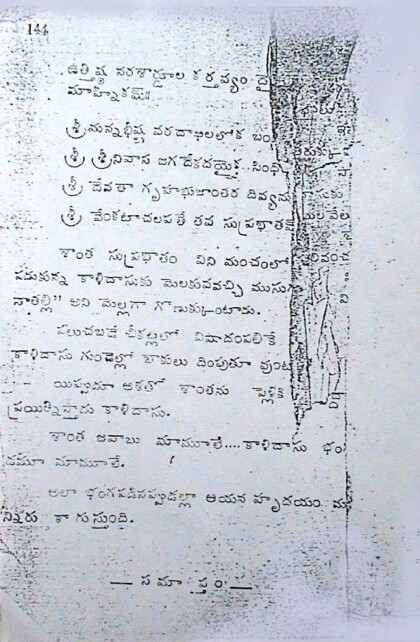 144
ఉత్తిష్ఠ నరశార్దూల కర్తవ్యం దై
మాహ్నికమ్॥
శ్రీమన్నభీష్ట వరదాఖిలలోక బం
శ్రీ శ్రీనివాస జగదేకదయైక సింధో
శ్రీ దేవతా గృహభుజాంతర దివ్యమూ
శ్రీ వేంకటాచలపతే తవ సుప్రభాత
శాంత సుప్రభాతం విని మంచంలో
పడుకున్న కాళిదాసుకు మెలకువవచ్చి ముసుగు
నాతల్లి" అని మెల్లగా గొణుక్కుంటాడు.
పలుచబడే చీకట్లలో విషాదంపలికే
కాళిదాసు గుండెల్లో బాకులు దింపుతూ వుంట
యిప్పుడూ ఆశతో శాంతను పెళ్లికి
ప్రయత్నిస్తాడు కాళిదాసు.
శాంత జవాబు మామూలే.... కాళిదాసు భం
మామూలే.
అలా భంగపడినప్పుడల్లా ఆయన హృదయం
న్నీరు కాగుస్తుంది.
— సమాప్తం —